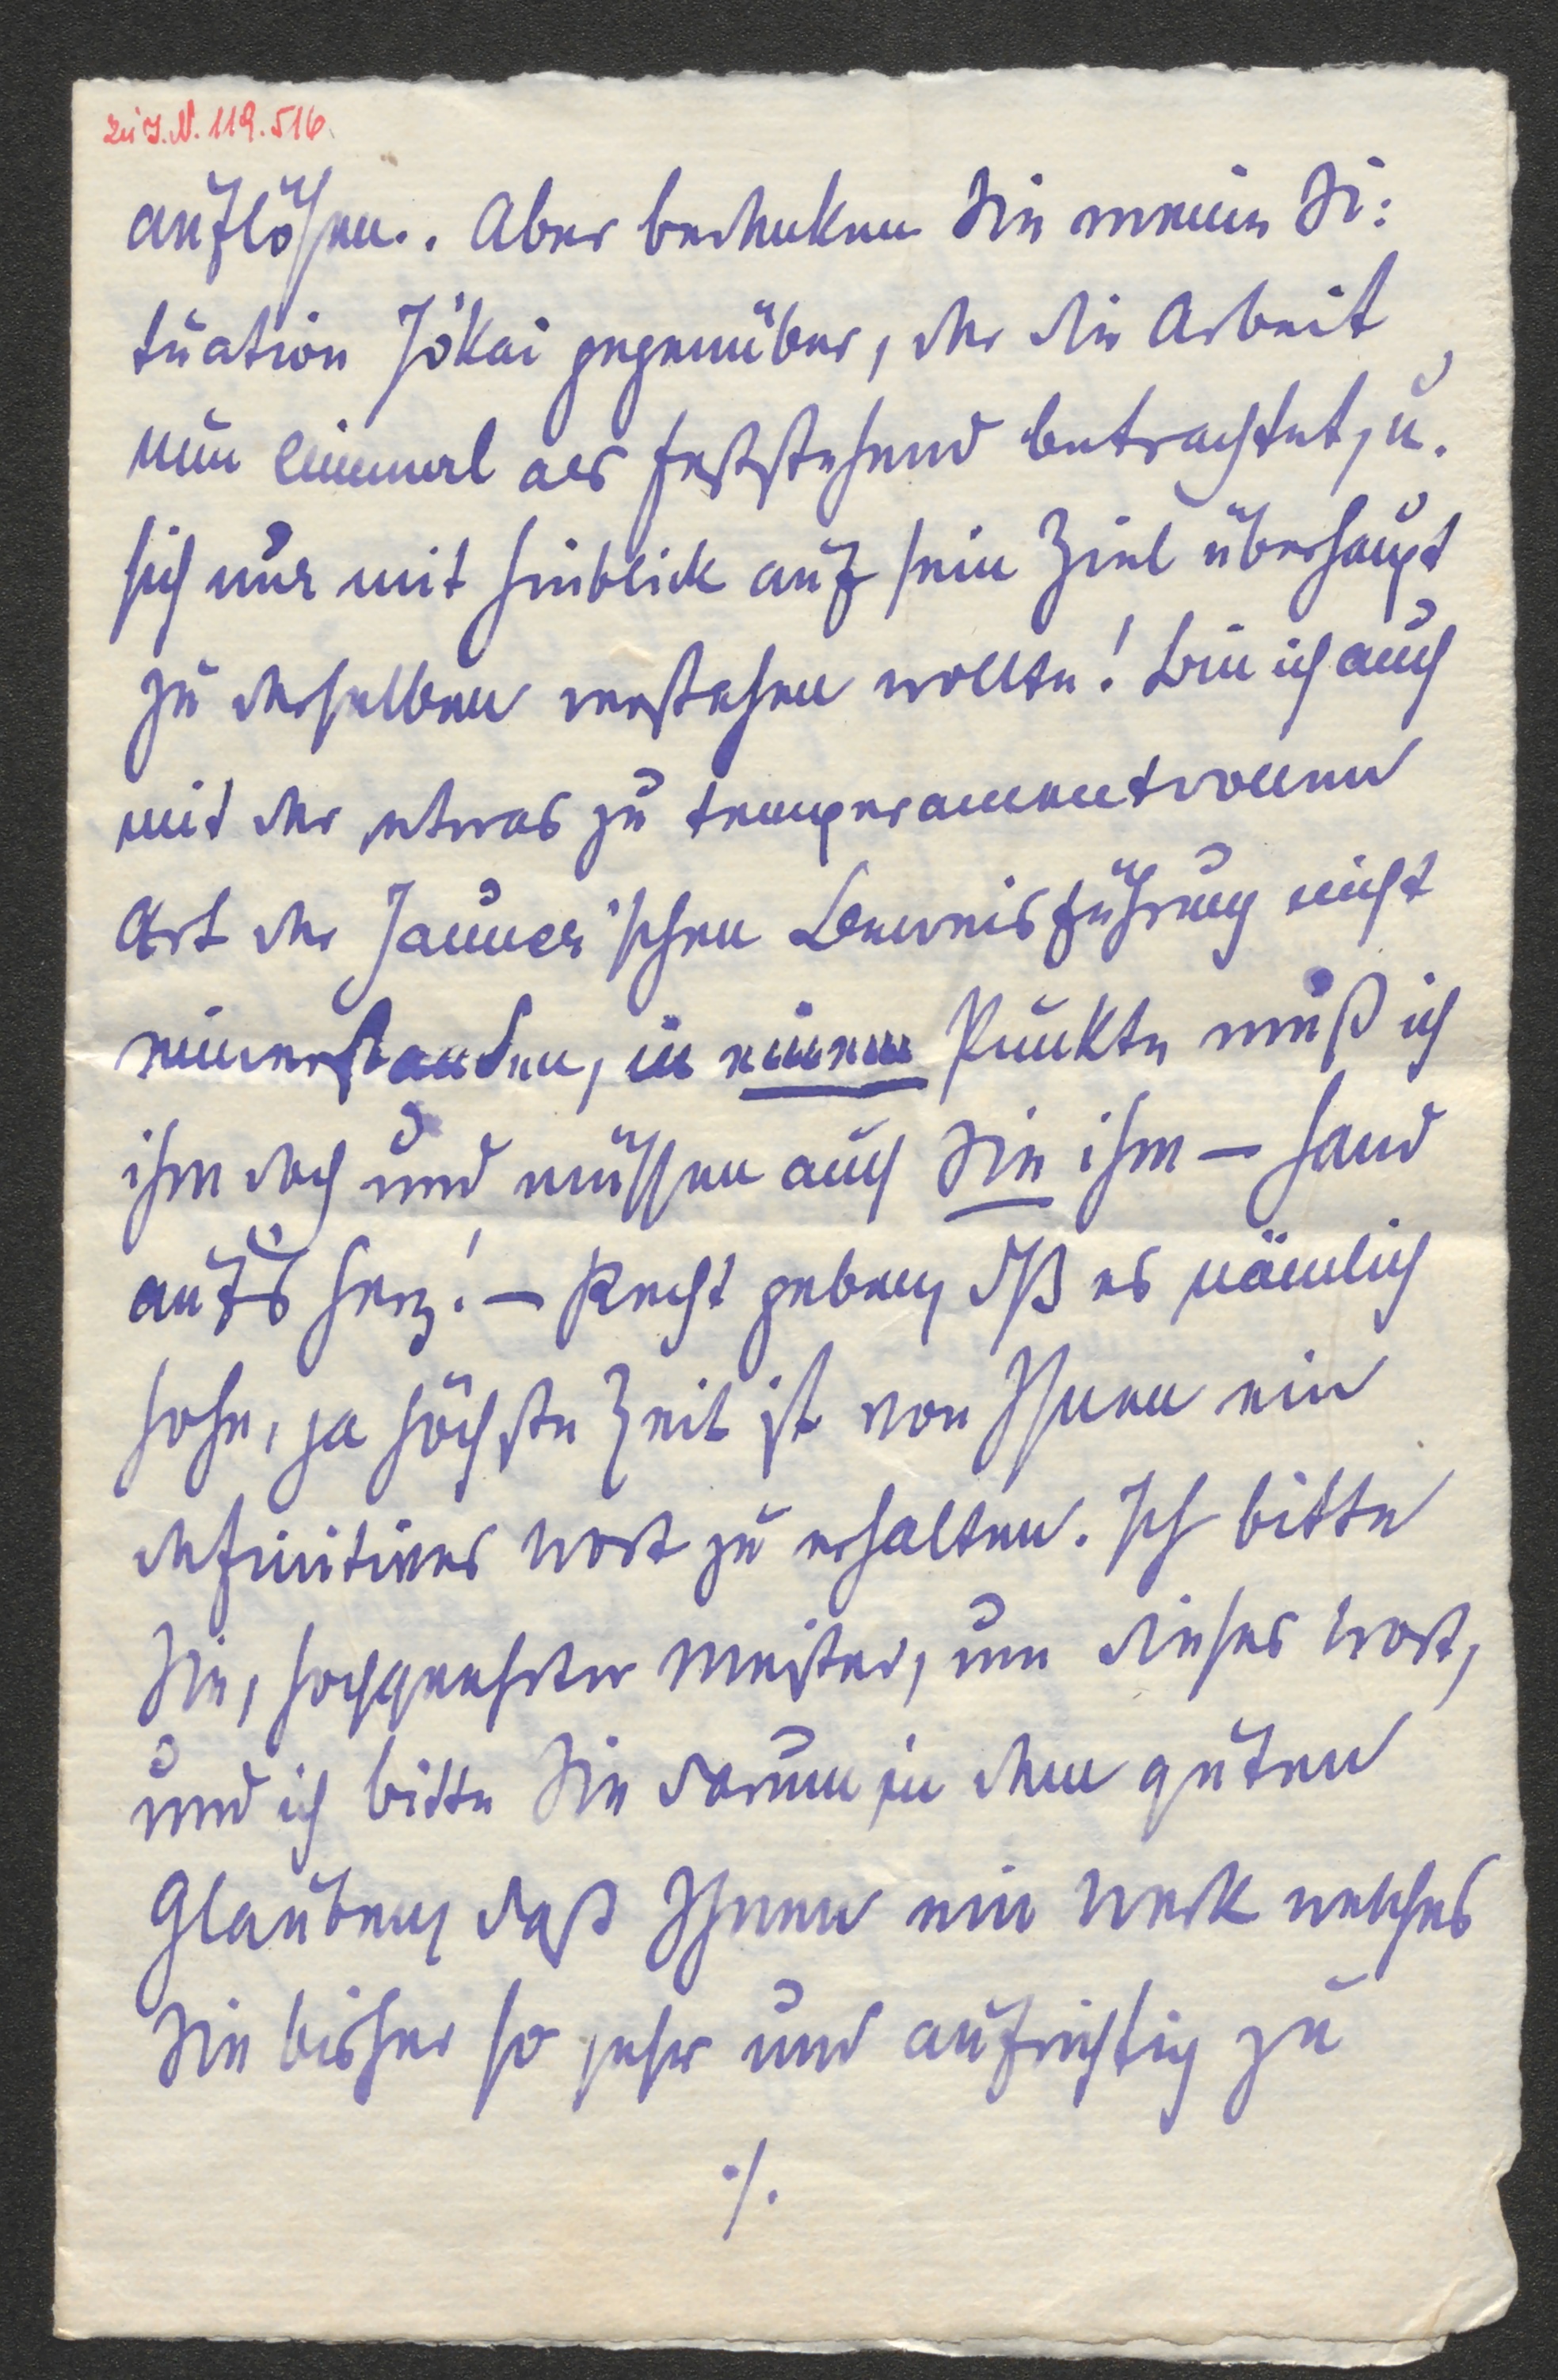 zu I.N. 119.516.
auflösen.. Aber bedenken Sie meine Si:
tuation Jókai gegenüber, der die Arbeit
nun einmal als feststehend betrachtet, u.
sich nur mit Hinblick auf sein Ziel überhaupt
zu derselben verstehen wollte! Bin ich auch
mit der etwas zu temperamentvollen
Art der Jauner'schen Beweisführung nicht
einverstanden, in einem Punkte muß ich
ihm doch und müssen auch Sie ihm – Hand
auf's Herz! – Recht geben, dß es nämlich
hohe, ja höchste Zeit ist von Ihnen ein
definitives Wort zu erhalten. Ich bitte
Sie, hochgeehrter Meister, um dieses Wort,
und ich bitte Sie darum in dem guten
Glauben, daß Ihnen ein Werk welches
Sie bisher so sehr und aufrichtig zu
./.